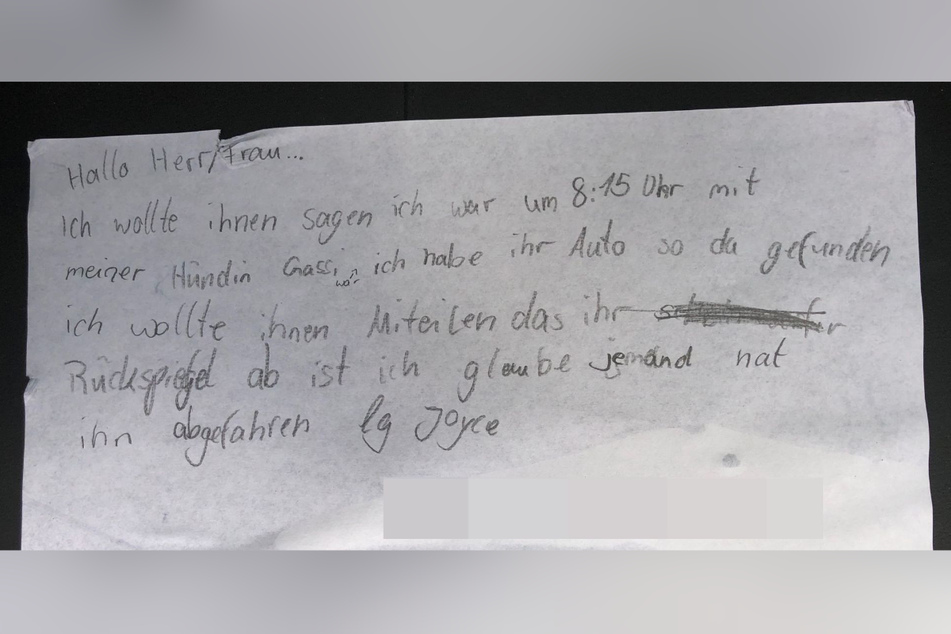 Hallo Herr/Frau...
Ich wollte ihnen sagen ich war um 8:15 Uhr mit
meiner Hündin Gassi, ich habe ihr Auto so da gefunden
war
ich wollte ihnen Miteilen das ihr
Rückspiegel ab ist ich glaube jemand hat
ihn abgefahren lg Joyce